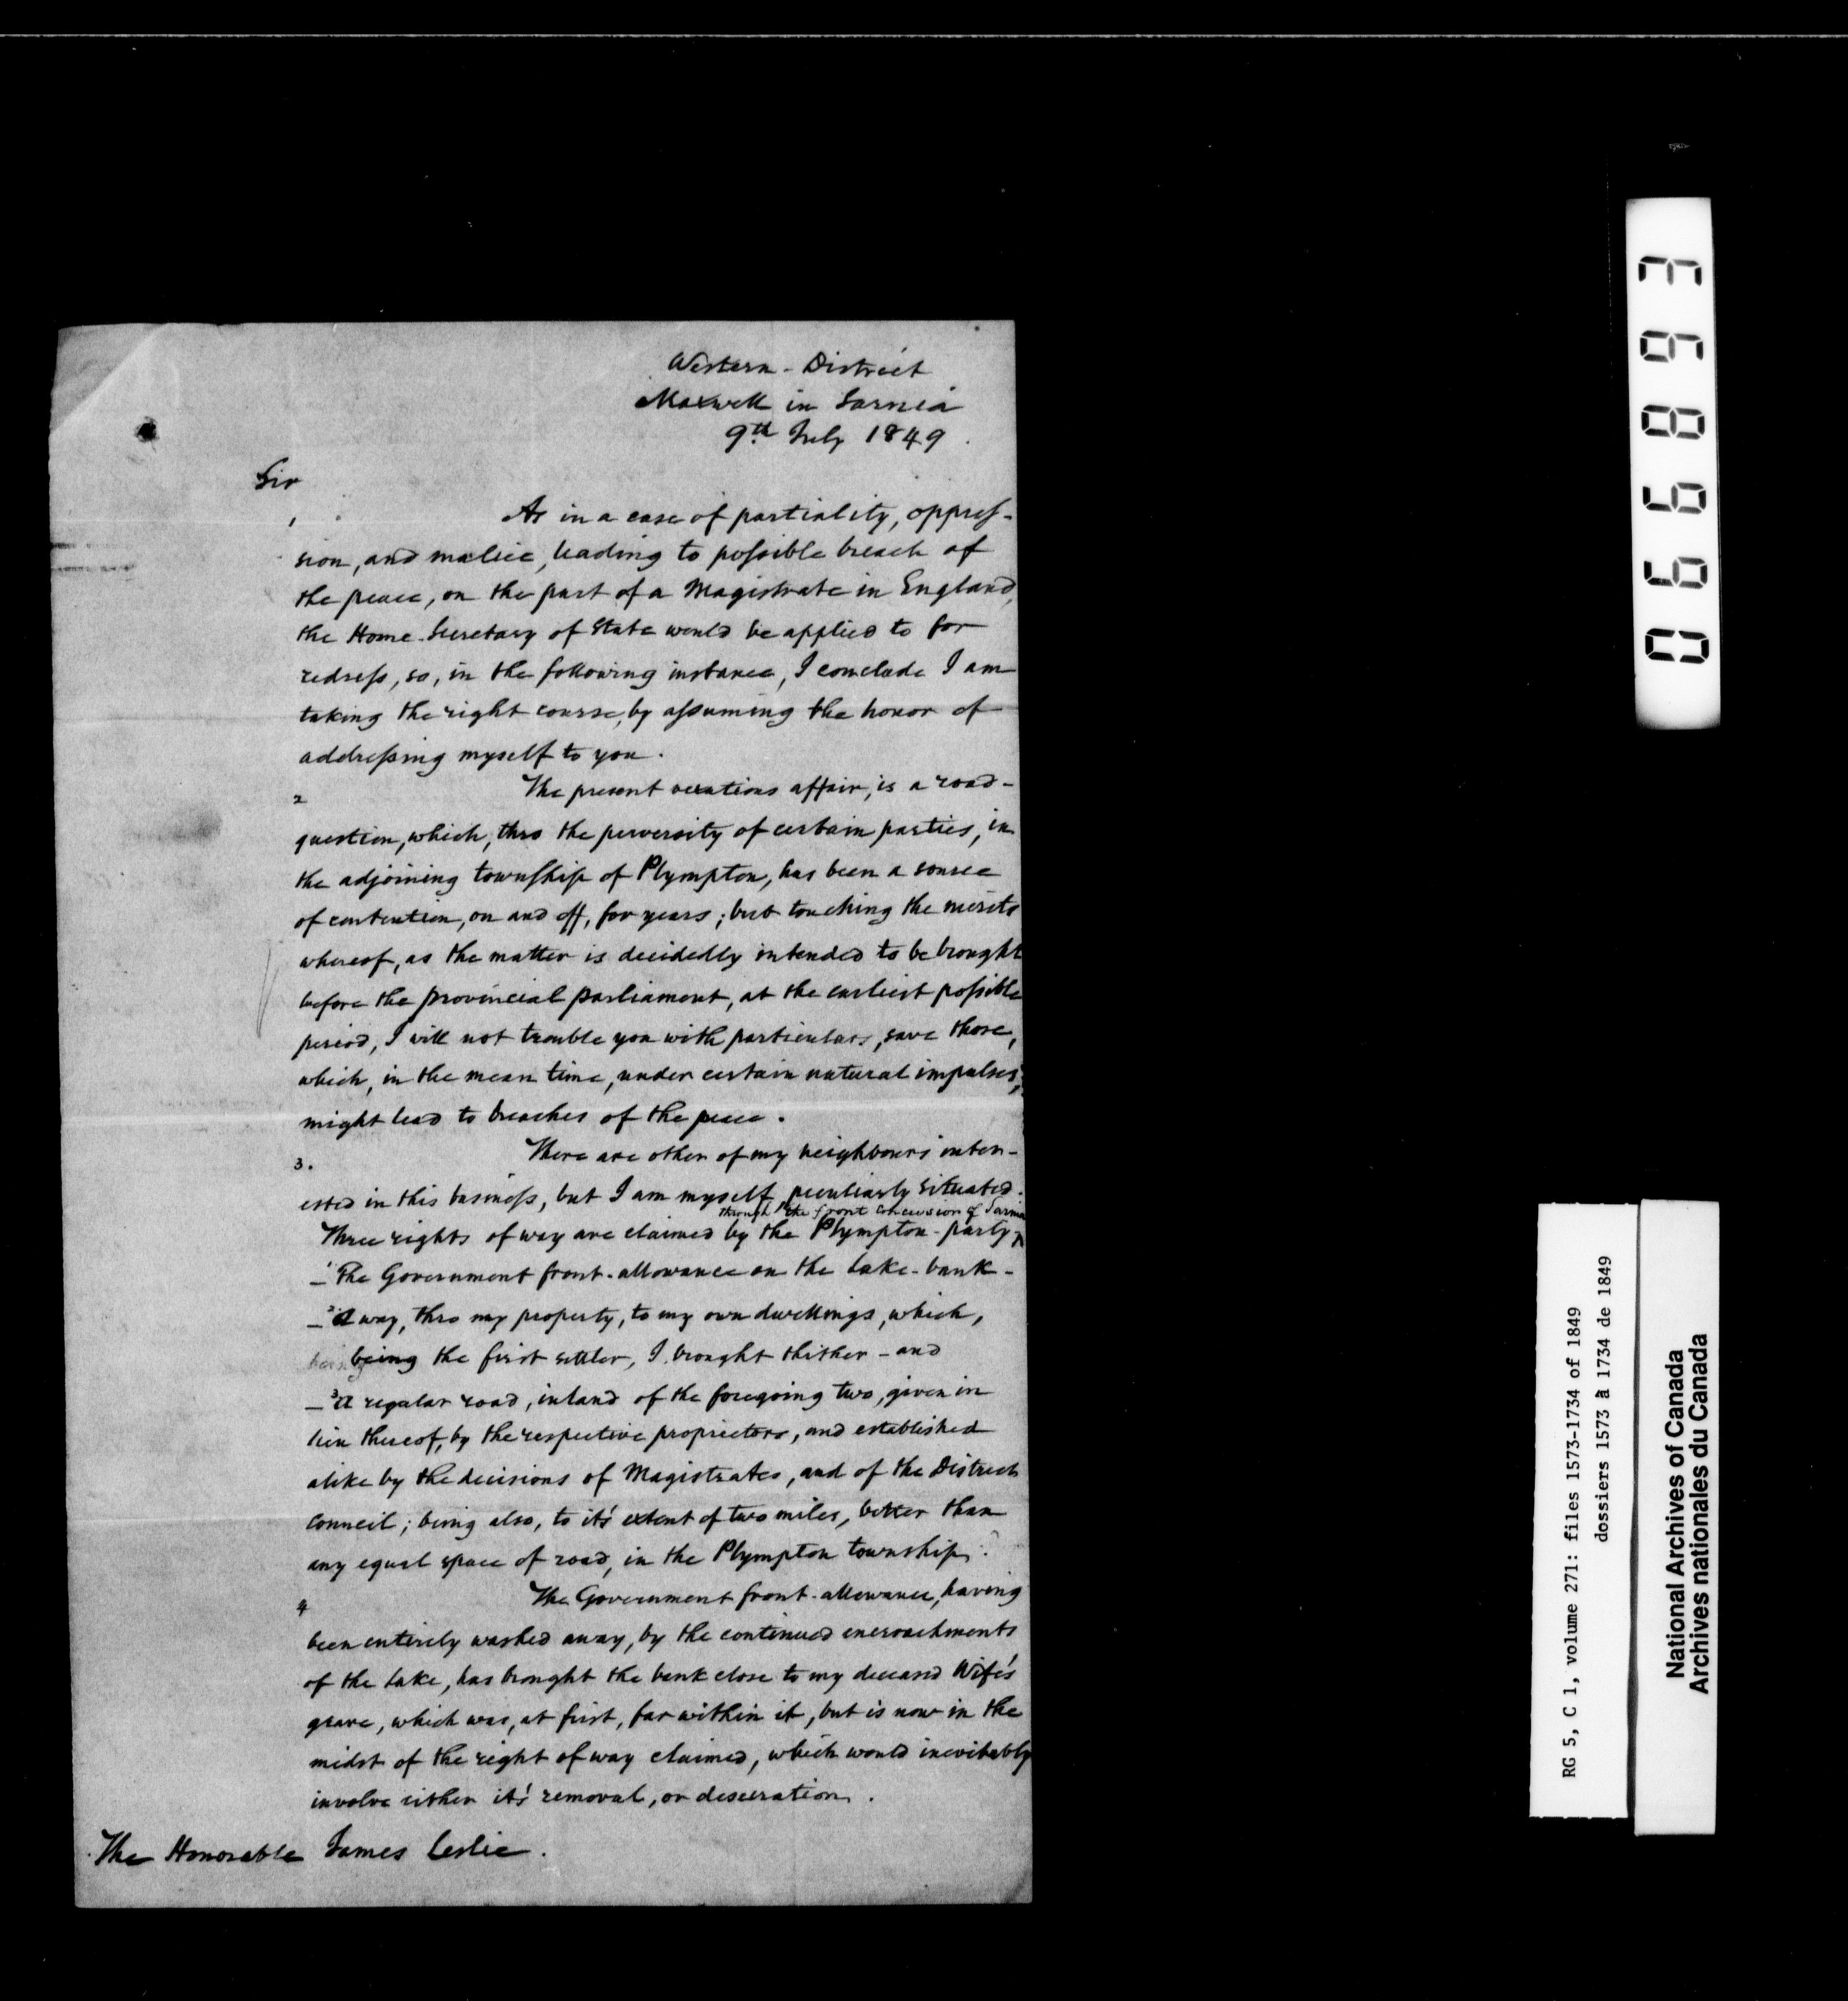 Western - District
Maxwell in Sarnia
9th July 1849.
Sir
1 As in a case of partiality, oppres-
sion, and malice, leading to possible breach of
the peace, on the part of a Magistrate in England,
the Home-Secretary of State would be applied to for
redress, so, in the following instance, I conclude I am
taking the right course, by assuming the honor of
addressing myself to you.
2 The present vexatious affair, is a road-
question, which, thro the perversity of certain parties, in
the adjoining township of Plympton, has been a source
of contention, on and off, for years; but touching the merits
whereof, as the matter is decidedly intended to be brought
before the provincial parliament, at the earliest possible
period, I will not trouble you with particulars, save those,
which, in the mean time, under certain natural impulses,
might lead to breaches of the peace.
3. There are other of my neighbours inter-
ested in this business, but I am myself peculiarly situated.
through the front concession of Sarnia
Three rights of way are claimed by the Plympton-party
— 1 The Government front-allowance on the Lake-bank -
— 2 A way, thro my property, to my own dwellings, which,
being the first settler, I brought thither - and
— 3 A regular road, inland of the foregoing two, given in
lieu thereof, by the respective proprietors, and established
alike by the decisions of Magistrates, and of the District
Council; being also, to it's extent of two miles, better than
any equal space of road, in the Plympton township.
4 The Government front-allowance, having
been entirely washed away, by the continued encroachments
of the Lake, has brought the bank close to my deceased Wife's
grave, which was, at first, far within it, but is now in the
midst of the right of way claimed, which would inevitably
involve either it's removal, or desecration.
The Honorable James Leslie.
066893
RG 5, C 1, volume 271: files 1573-1734 of 1849
dossiers 1573 à 1734 de 1849
National Archives of Canada
Archives nationales du Canada